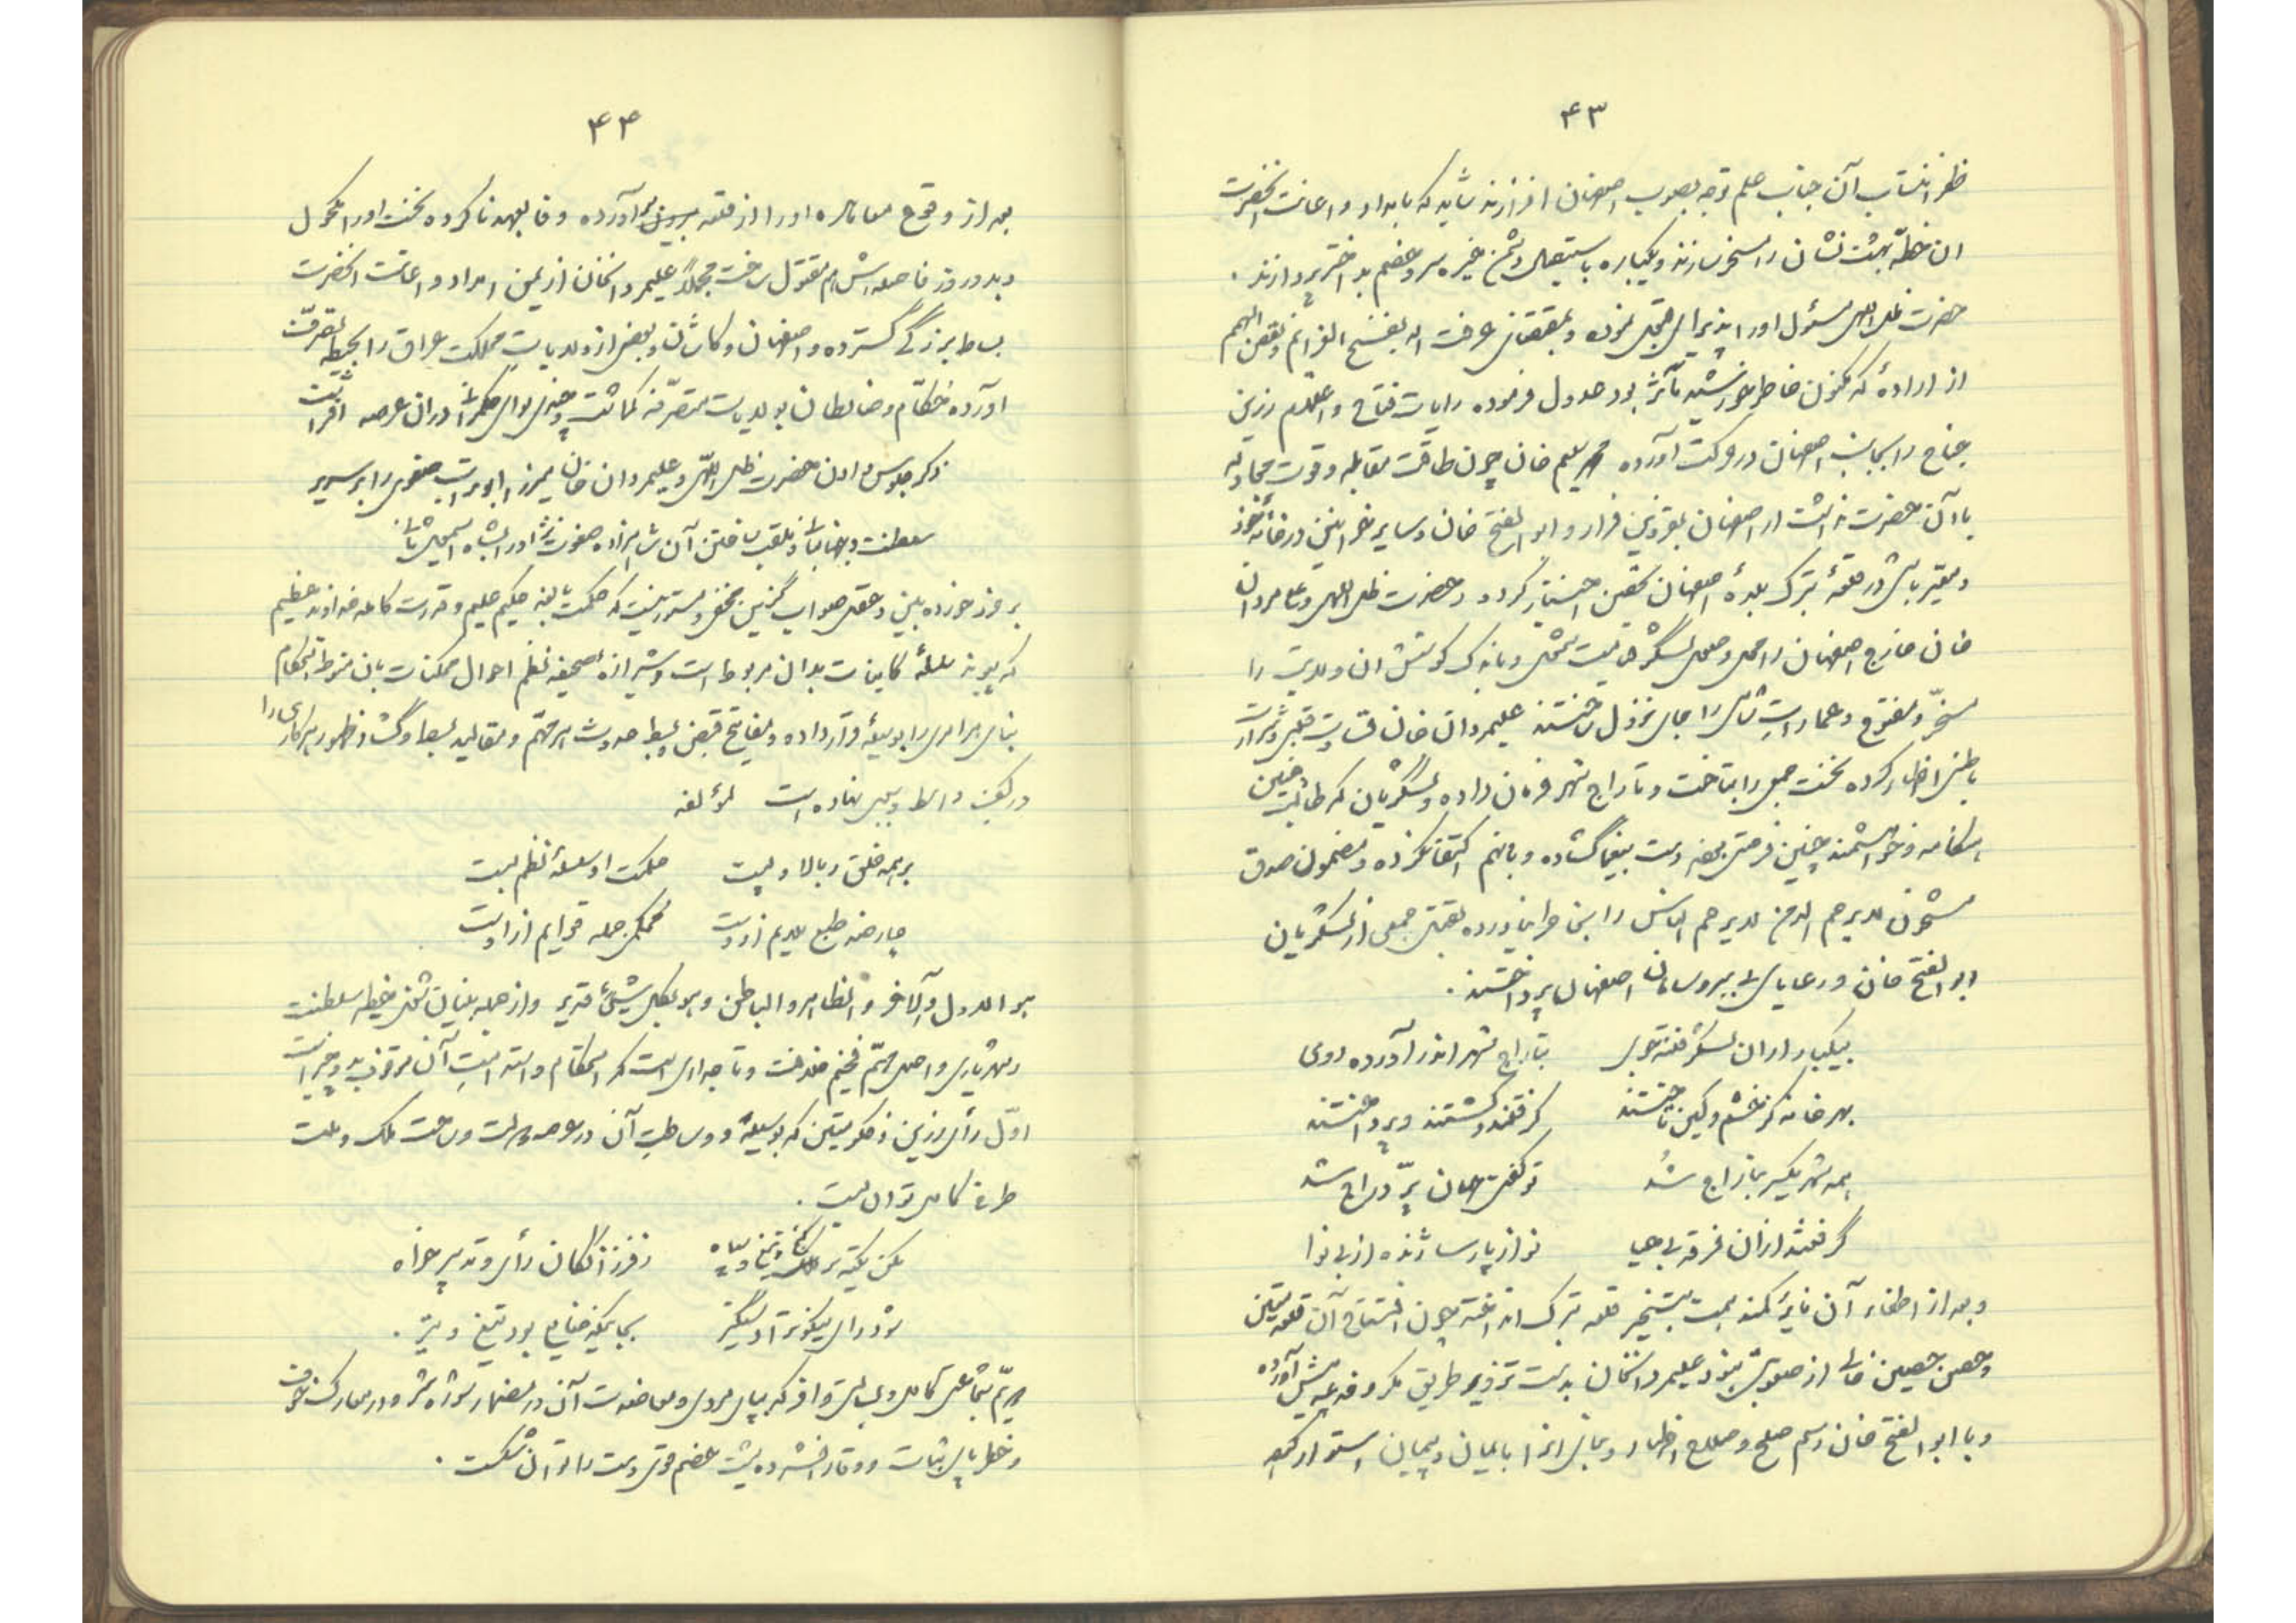 ۴۳
ظفر انتساب آن جناب علم توجه بصوب اصفهان افرازند شاید که بامداد و اعانت آنحضرت
ان خطّه بهشت نشان را مسخر سازند و یکباره باستیصال دشمن خیره سر و خصم بد اختر پردازند .
حضرت ظل اللهی مسئول او را پذیرای قبول نموده و بمقتضای عرفت الله بفسخ العزائم و نقض الهمم
از ارادهٔ که مکنون خاطر خورشید مآثر بود عدول فرموده رایات فتاح و اعلام رزین
جناح را بجانب اصفهان در حرکت آورده محمد سلیم خان چون طاقت مقابله و قوت مجادله
با آن حضرت نداشت از اصفهان بقزوین فرار و ابوالفتح خان و سایر خوانین در خانهٔ خود
در قلعهٔ تبرک بلدهٔ اصفهان تحصن اختیار کرده و حضرت ظل اللهی و علیمردان
خان خارج اصفهان را محل و صلای لشگر و باندک کوشش ان ولایت را
مسخّر و مفتوح و عمارات شاهی را جای نزول ساختند علیمردان خان قساوت قلبی و شرارت
باطنی اظهار کرده نخست جمعی را بتاخت و تاراج شهر فرمان داده و لشگریان که طالب چنین
هنگامه و خواهشمند چنین فرصتی بودند دست بیغما گشاده و باینهم اکتفا نکرده و مضمون صدق
مشحون لایرحم الله من لایرحم الناس را بخاطر نیاورده بقتل جمعی از لشکریان
ابوالفتح خان و رعایای بی سر و سامان اصفهان پرداختند .
بیکبار از ان لشکر فتنه جوی بتاراج شهر اندر آورده روی
بهر خانه کز خشم و کین تاختند گرفتند و کشتند و پرداختند
همه شهر یکسر بتاراج شد تو گفتی جهان پرّ درّاج شد
گرفتند از ان فرقه بی حیا نو از پارسا ژنده از بی نوا
و بعد از اطفاء آن نایره کمند همت بتسخیر قلعه تبرک انداخته چون افتتاح آن قلعه متین
و حصن حصین خالی از صعوبتی نبود علیمردانخان بدست تزویر طریق مکر و خدعه پیش آورده
و با ابوالفتح خان رسم صلح و صلاح اظهار و بنای انرا بایمان و پیمان استوار کرد
۴۴
بعد از وقوع معاهده او را از قلعه بیرون آورده وفا بعهد ناکرده نخست او را مکحول
و بعد دو روز فاصله اش هم مقتول ساخت مجملاً علیمردانخان از یمن امداد و اعانت آنحضرت
بساط بزرگی گسترده و اصفهان و کاشان و بعضی از ولایات مملکت عراق را بحیطه تصرف
آورده حکّام و ضابطان بولایات متصرفه گماشت و چندی لوای حکمرانی دران عرصه افراشت
ذکر جلوس دادن حضرت ظل اللهی و علیمردان خان میرزا ابوتراب صفوی را بر سریر
سلطنت و جهانبانی و ملقب ساختن آن شاهزاده صفوت نژاد را بشاه اسمعیل ثانی
بر خرد خورده بین و عقل صواب گزین مخفی و مستور نیست که حکمت بالغه حکیم علیم و قدرت کامله خداوند عظیم
که پیوند سلسلهٔ کاینات بدان مربوط است و شیرازهٔ صحیفه نظم احوال ممکنات بان منوط استحکام
بنای هر امری را بوسیلهٔ قرار داده و مفاتیح قبض و بسط حدوث هر مهمّ و مقالید بست و گشاد ظهور هر کاری را
در کف واسط و سببی نهاده است لمؤلفه
بر همه خلق ز بالا و پست حکمت او سلسلهٔ نظم بست
چار ضد طبع ملایم ازوست محکمی جمله قوایم ازوست
هو الاول و الآخر و الظاهر و الباطن و هو بکل شیئ قدیر و از جمله بنیان شغل خطیر سلطنت
و شهریاری و اصل مهمّ فخیم خلافت و تاجداری است که استحکام و استدامتِ آن موقوف بدو چیز است
اوّل رأی رزین و فکر متین که بوسیلهٔ و وساطت آن در عرصه دولت و ساحت ملک و ملت
طرف کامل توان بست .
مکن تکیه بر ملک و تیغ و سپاه ز فرزانگان رأی و تدبیر خواه
بود رای نیکو تر ا دستگیر بجائیکه ضایع بود تیغ و تیر .
دیم شجاعتی کامل و بسالتی وافر که بپای مردی و معاضدت آن در مضمار شور و شر و در معارک خوف
و خطر پای ثبات و وقار افشرده پشت خصم قوی دست را توان شکست .